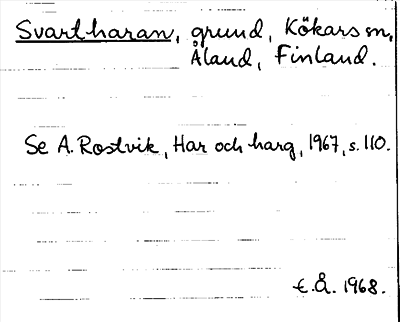 Svartharan, grund, Kökars sn,
Åland, Finland.
Se A. Rostvik, Har och harg, 1967, s. 110.
€.Å. 1968.